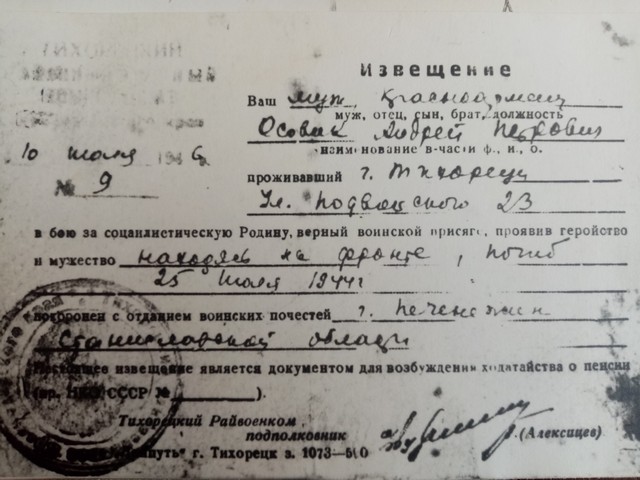 Извещение
Ваш муж, красноармеец
муж, отец, сын, брат, должность
Осовик Андрей Петрович
наименование в-части ф., и., о.
10 июля 1946
№ 9
проживавший г. Тихорецк
Ул. Подвойского 23
в бою за социалистическую Родину, верный воинской присяге, проявив геройство
и мужество находясь на фронте, погиб
25 июля 1944 г
похоронен с отданием воинских почестей г. Печенежин
Станиславской области
Настоящее извещение является документом для возбуждения ходатайства о пенсии
(пр. НКО СССР № ).
Тихорецкий Райвоенком
подполковник (Алексицев)
г. Тихорецк з. 1073—500